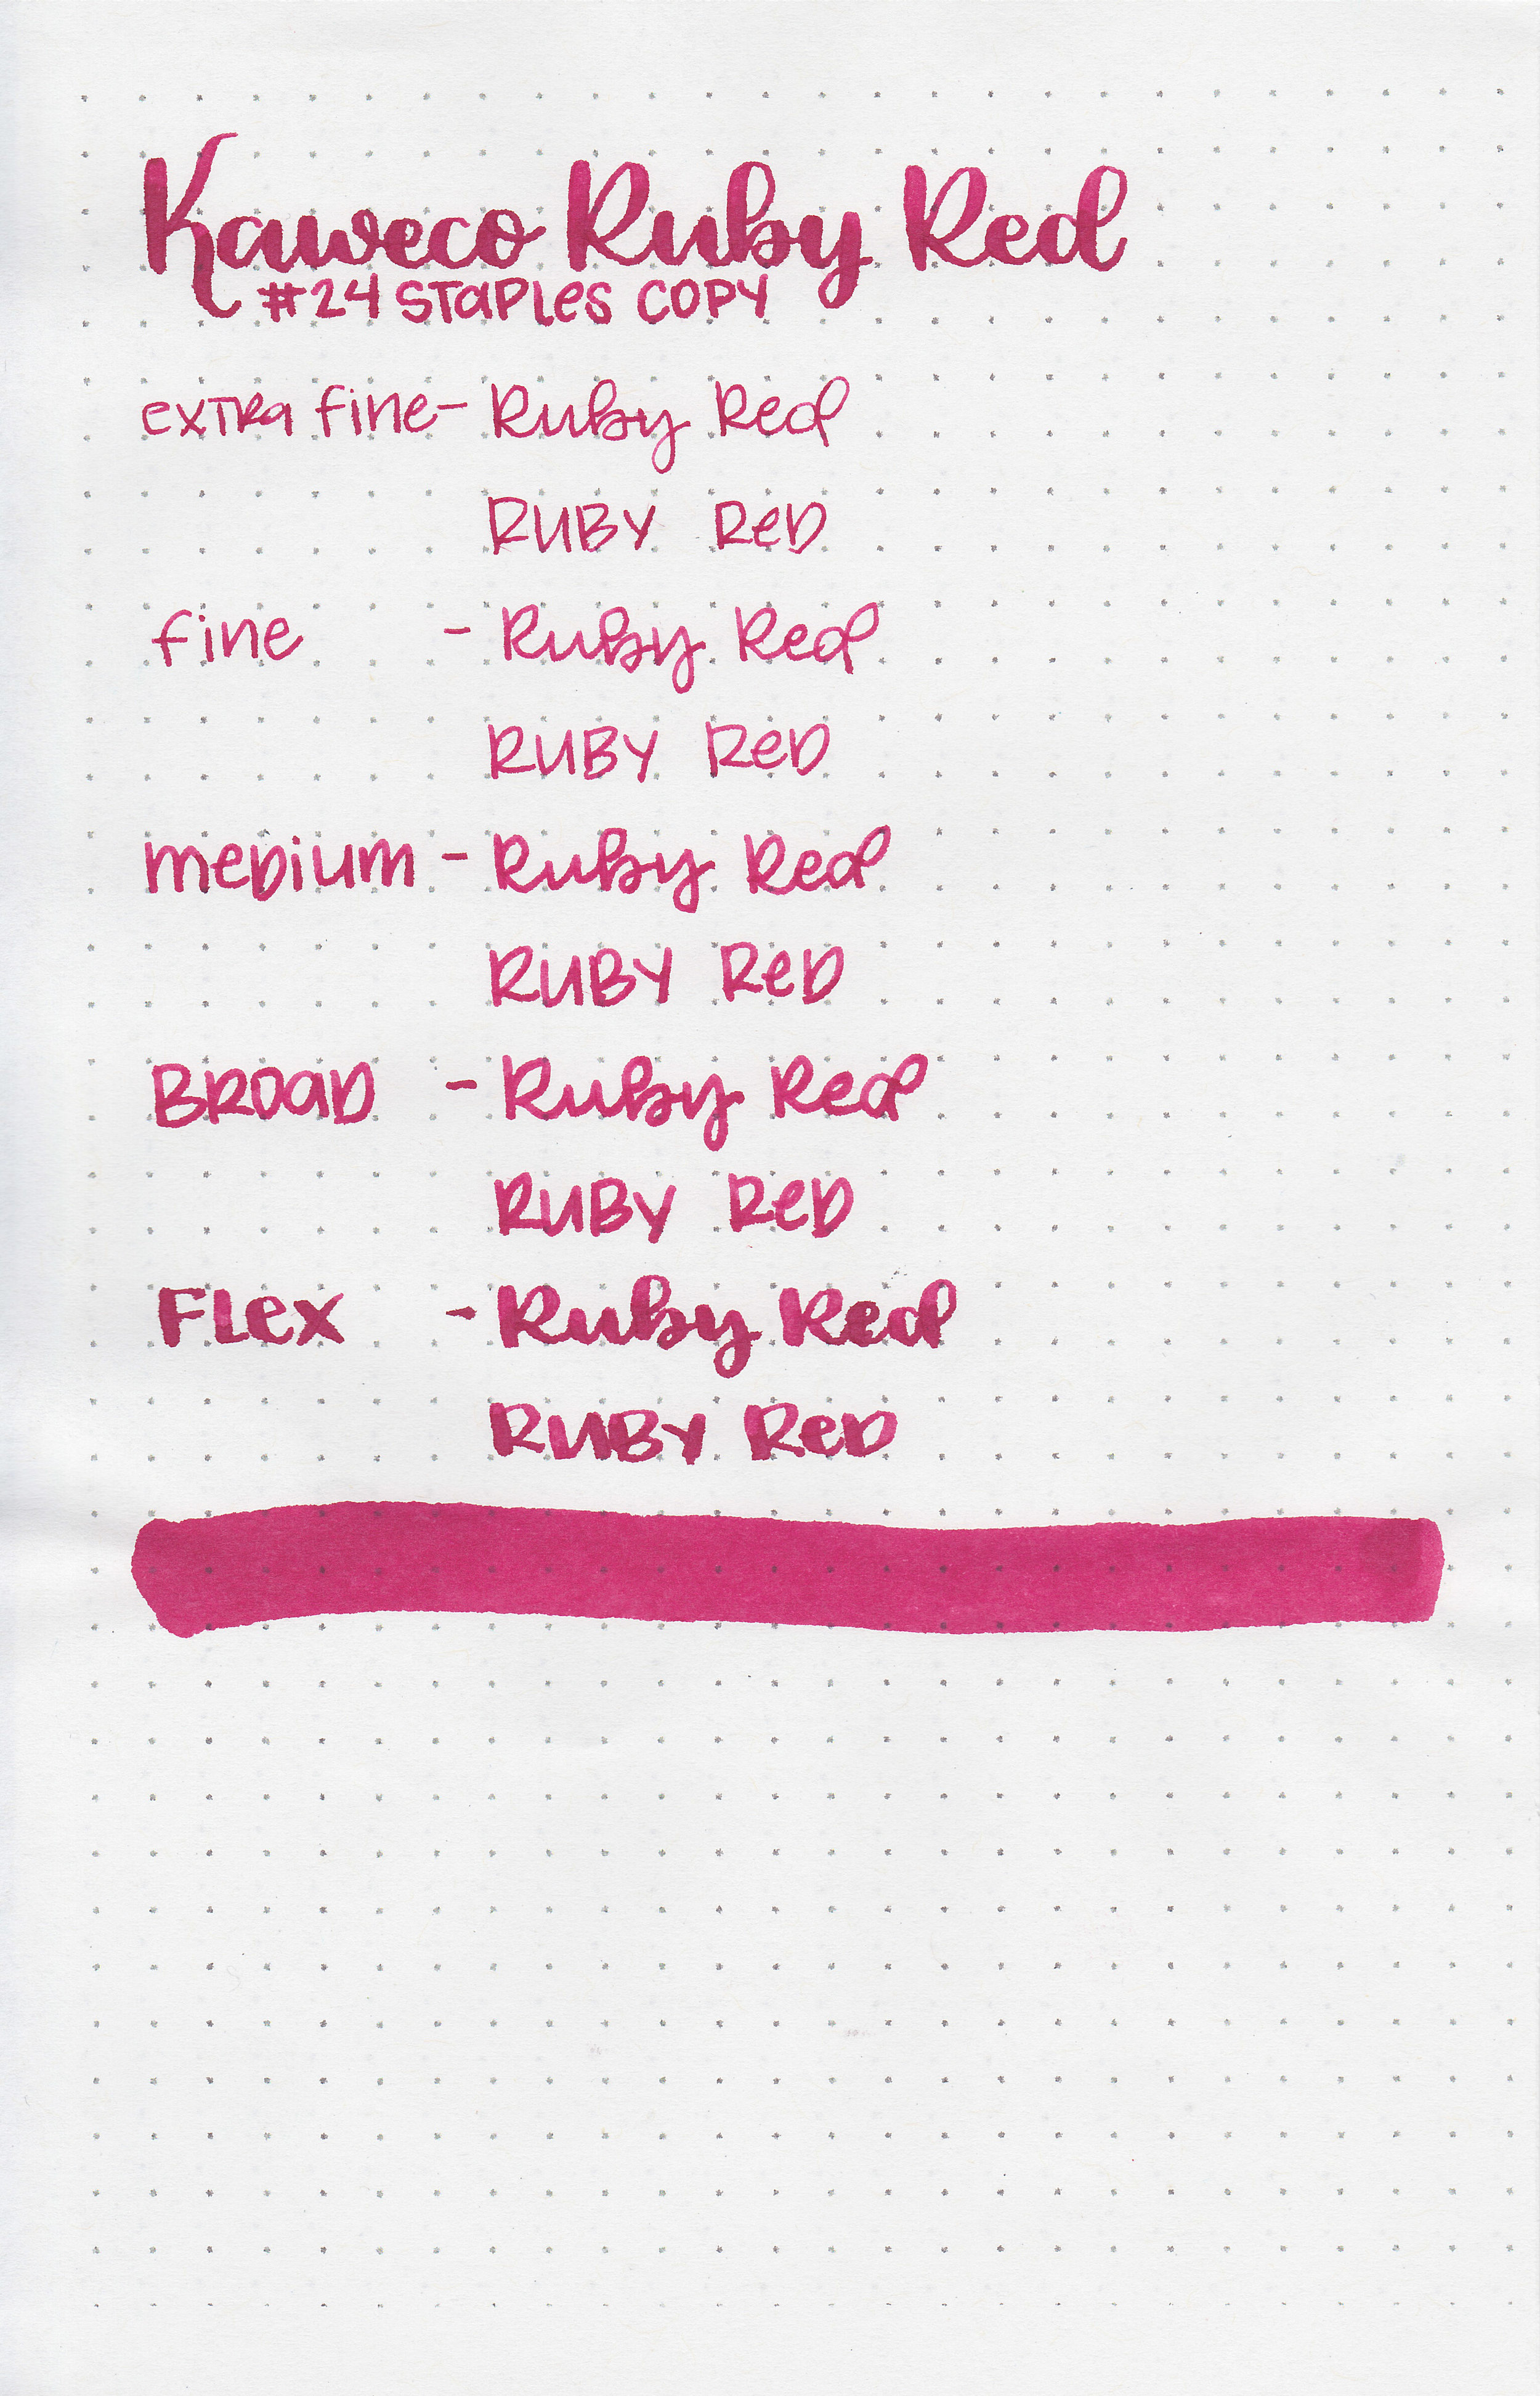 Kaweco Ruby Red
#24 STAPLes COPY
exTRa fine- Ruby Red
RUBY ReD
fine - Ruby Red
RUBY ReD
meDium - Ruby Red
RUBY ReD
BROaD - Ruby Red
RUBY ReD
FLex - Ruby Red
RUBY ReD